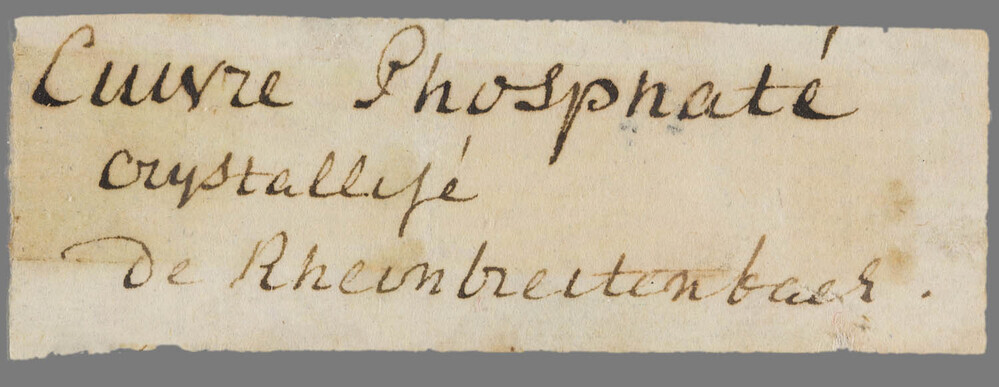 Cuivre Phosphaté
crystallisé
De Rheinbreitenbach.